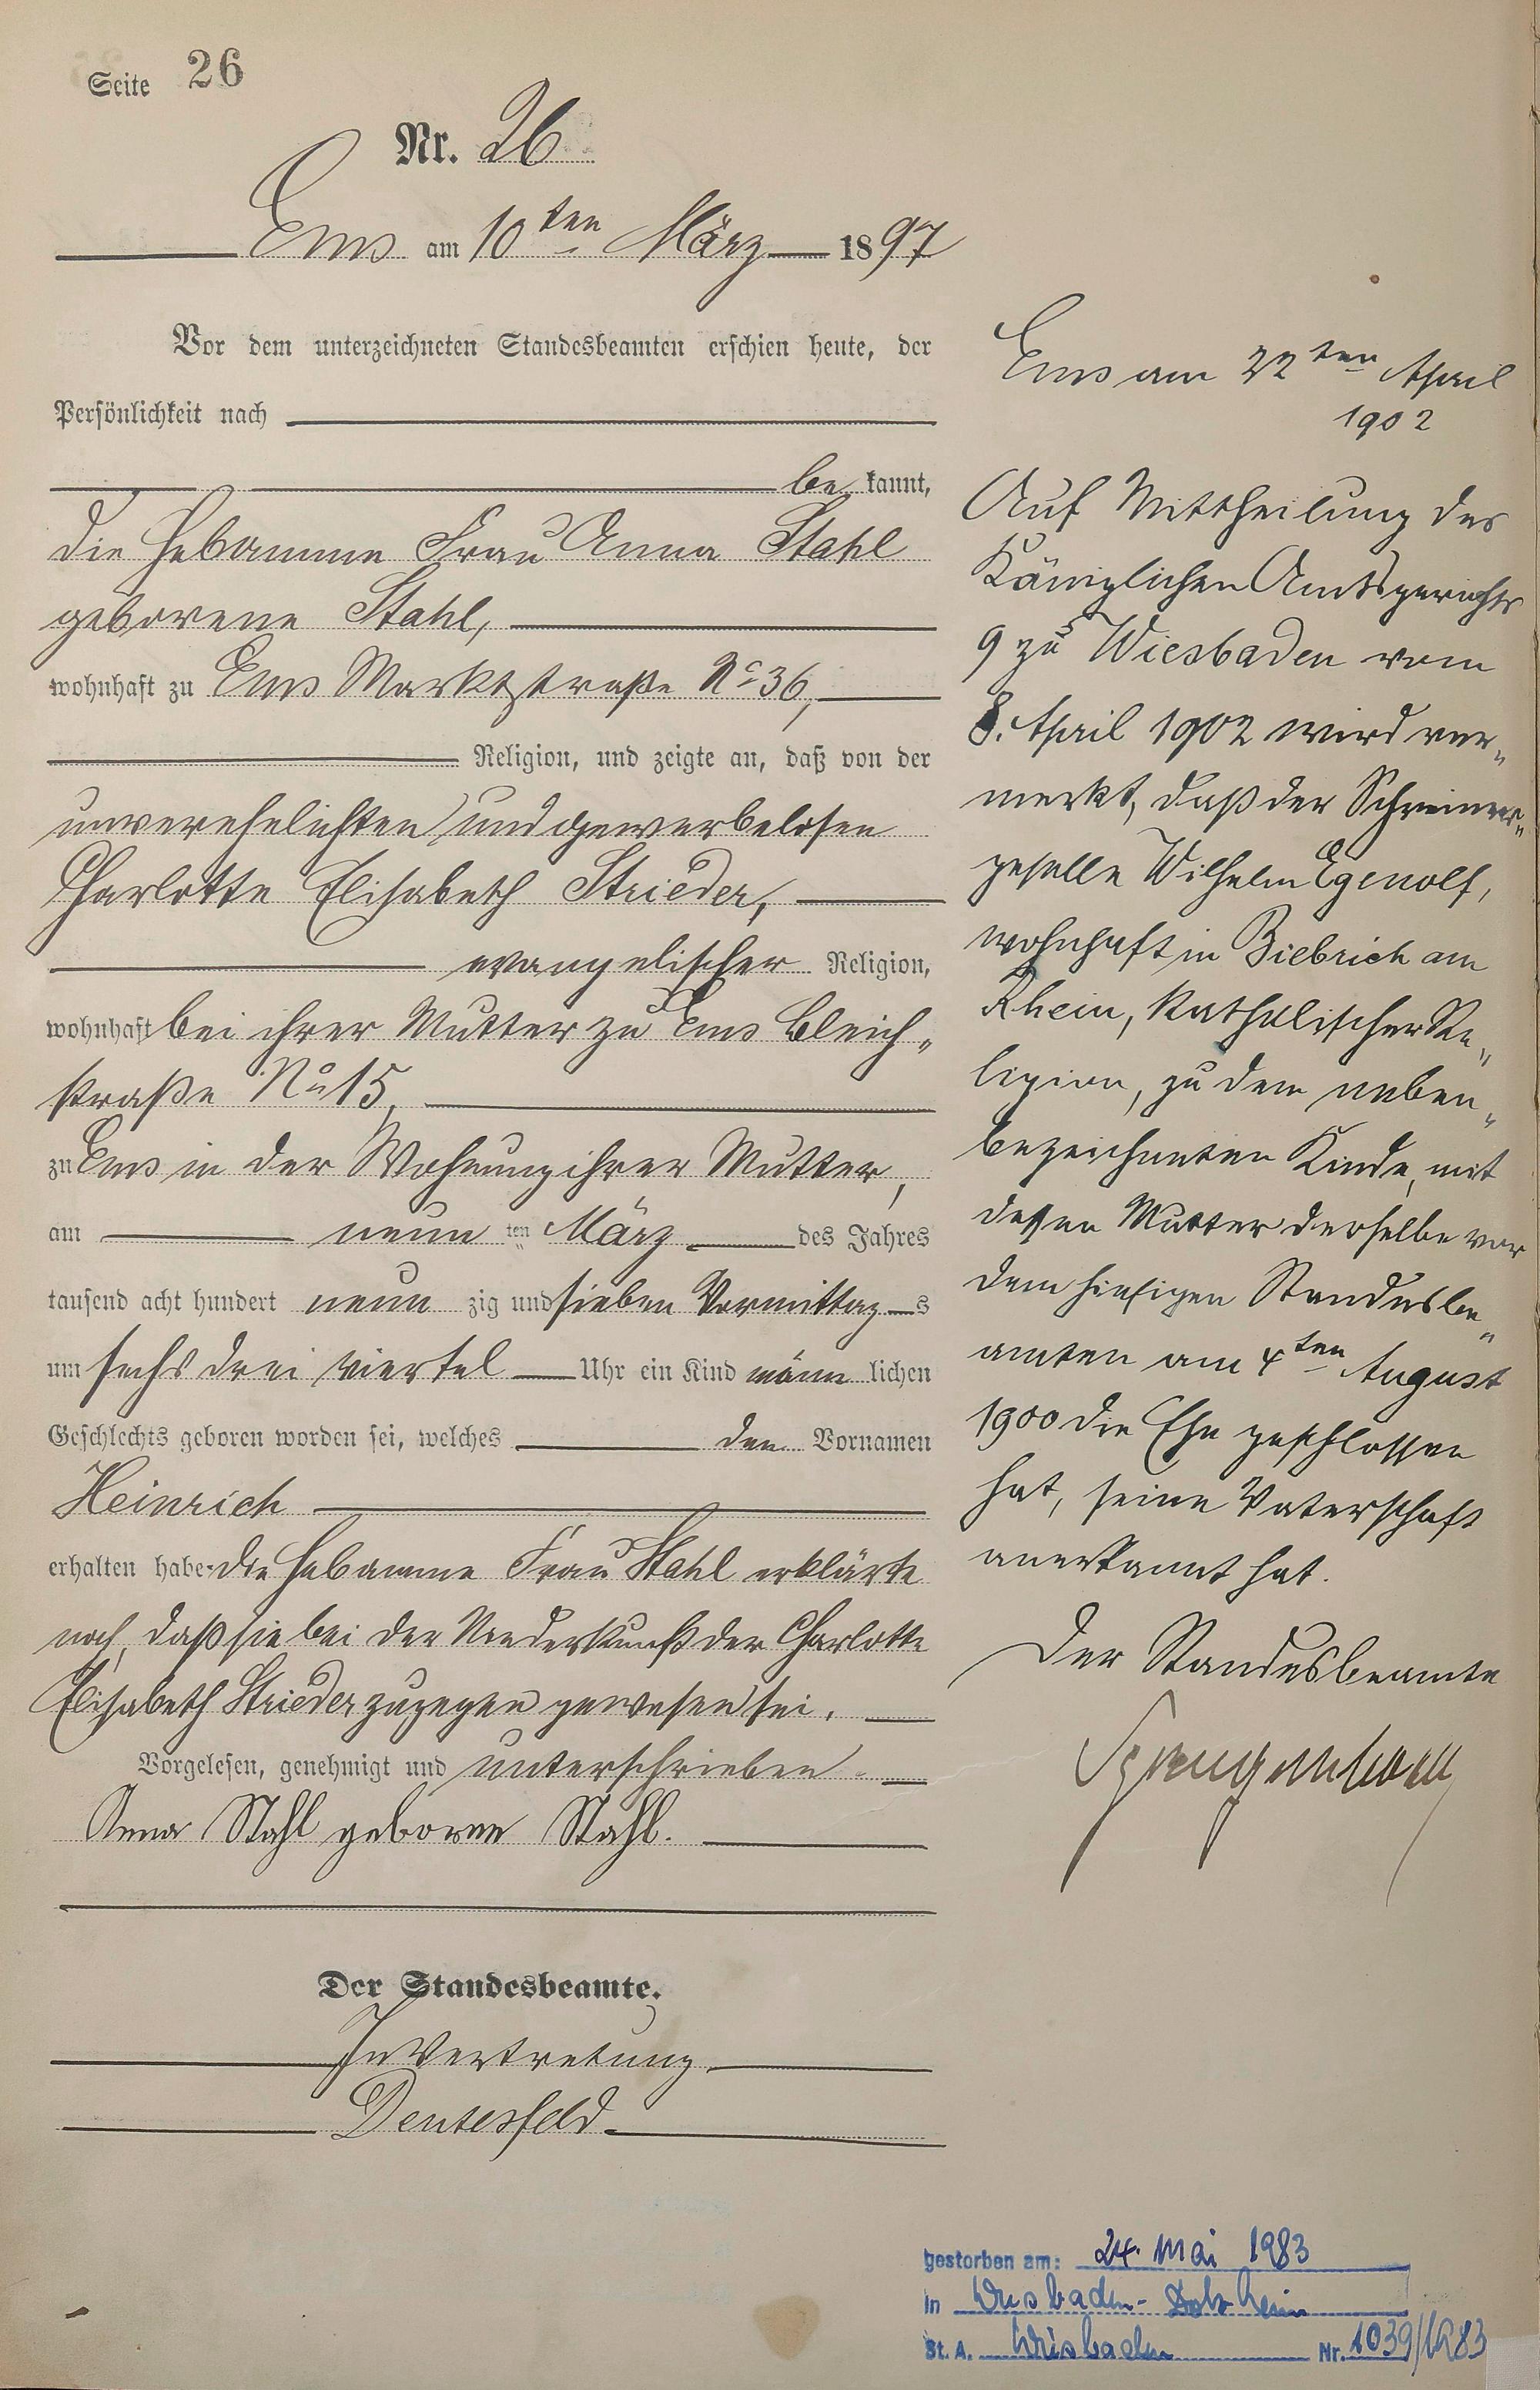 Seite 26
Nr. 26
Ems am 10ten März 1897
Vor dem unterzeichneten Standesbeamten erschien heute, der
Persönlichkeit nach
be kannt,
die Hebamme Frau Anna Stahl
geborene Stahl,
wohnhaft zu Ems Marktstraße No 36,
Religion, und zeigte an, daß von der
unverehelichten und gewerbelosen
Charlotte Elisabeth Strieder,
evangelischer Religion,
wohnhaft bei ihrer Mutter zu Ems Bleich„
straße No 15,
zu Ems in der Wohnung ihrer Mutter,
am neun ten März des Jahres
tausend acht hundert neun zig und sieben Vormittag s
um sechs drei viertel Uhr ein Kind männ lichen
Geschlechts geboren worden sei, welches den Vornamen
Heinrich
erhalten habe. Die Hebamme Frau Stahl erklärte
noch, daß sie bei der Niederkunft der Charlotte
Elisabeth Strieder zugegen gewesen sei.
Vorgelesen, genehmigt und unterschrieben
Anna Stahl geborene Stahl.
Der Standesbeamte.
In Vertretung
Ems am 22ten April
1902
Auf Mittheilung des
Königlichen Amtsgerichts
9 zu Wiesbaden vom
8. April 1902 wird ver„
merkt, daß der Schreiner„
geselle Wilhelm Egenolf,
wohnhaft in Biebrich am
Rhein, katholischer Re„
ligion, zu dem neben„
bezeichneten Kinde, mit
dessen Mutter derselbe vor
dem hiesigen Standesbe„
amten am 4ten August
1900 die Ehe geschlossen
hat, seine Vaterschaft
anerkannt hat.
Der Standesbeamte
gestorben am: 24. Mai 1983
in Wiesbaden-Dotzheim
St. A. Wiesbaden Nr. 1039/1983